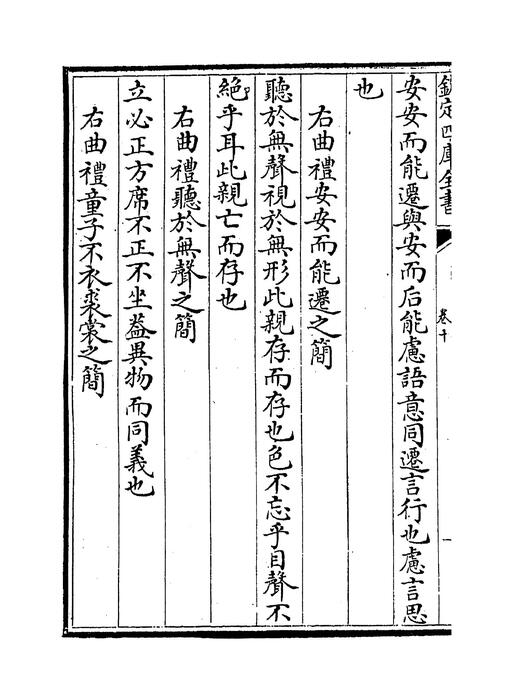 欽定四庫全書
卷十
安安而能遷與安而后能慮語意同遷言行也慮言思
也
右曲禮安安而能遷之簡
聽於無聲視於無形此親存而存也色不忘乎目聲不
絶乎耳此親亡而存也
右曲禮聽於無聲之簡
立必正方席不正不坐葢異物而同義也
右曲禮童子不衣裘裳之簡